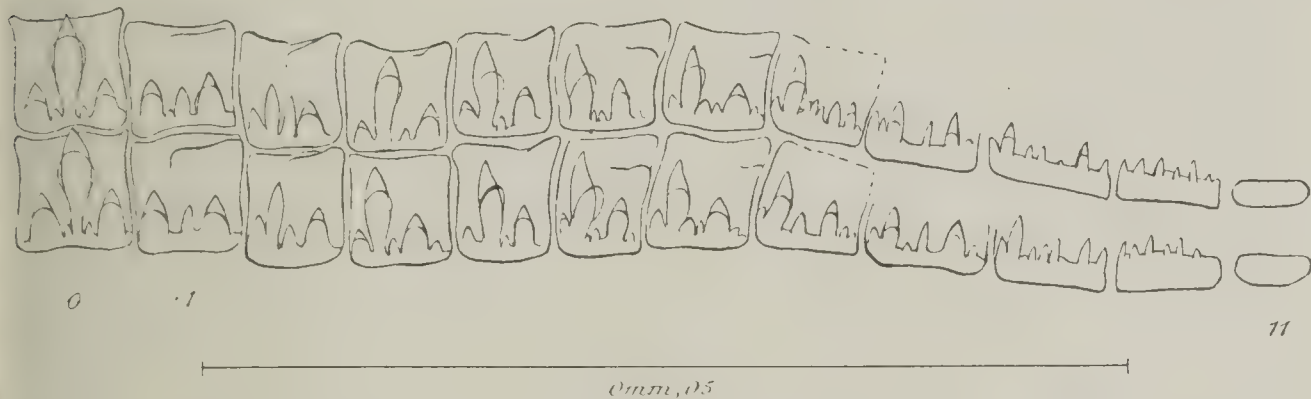 0 .1 11
0mm,05